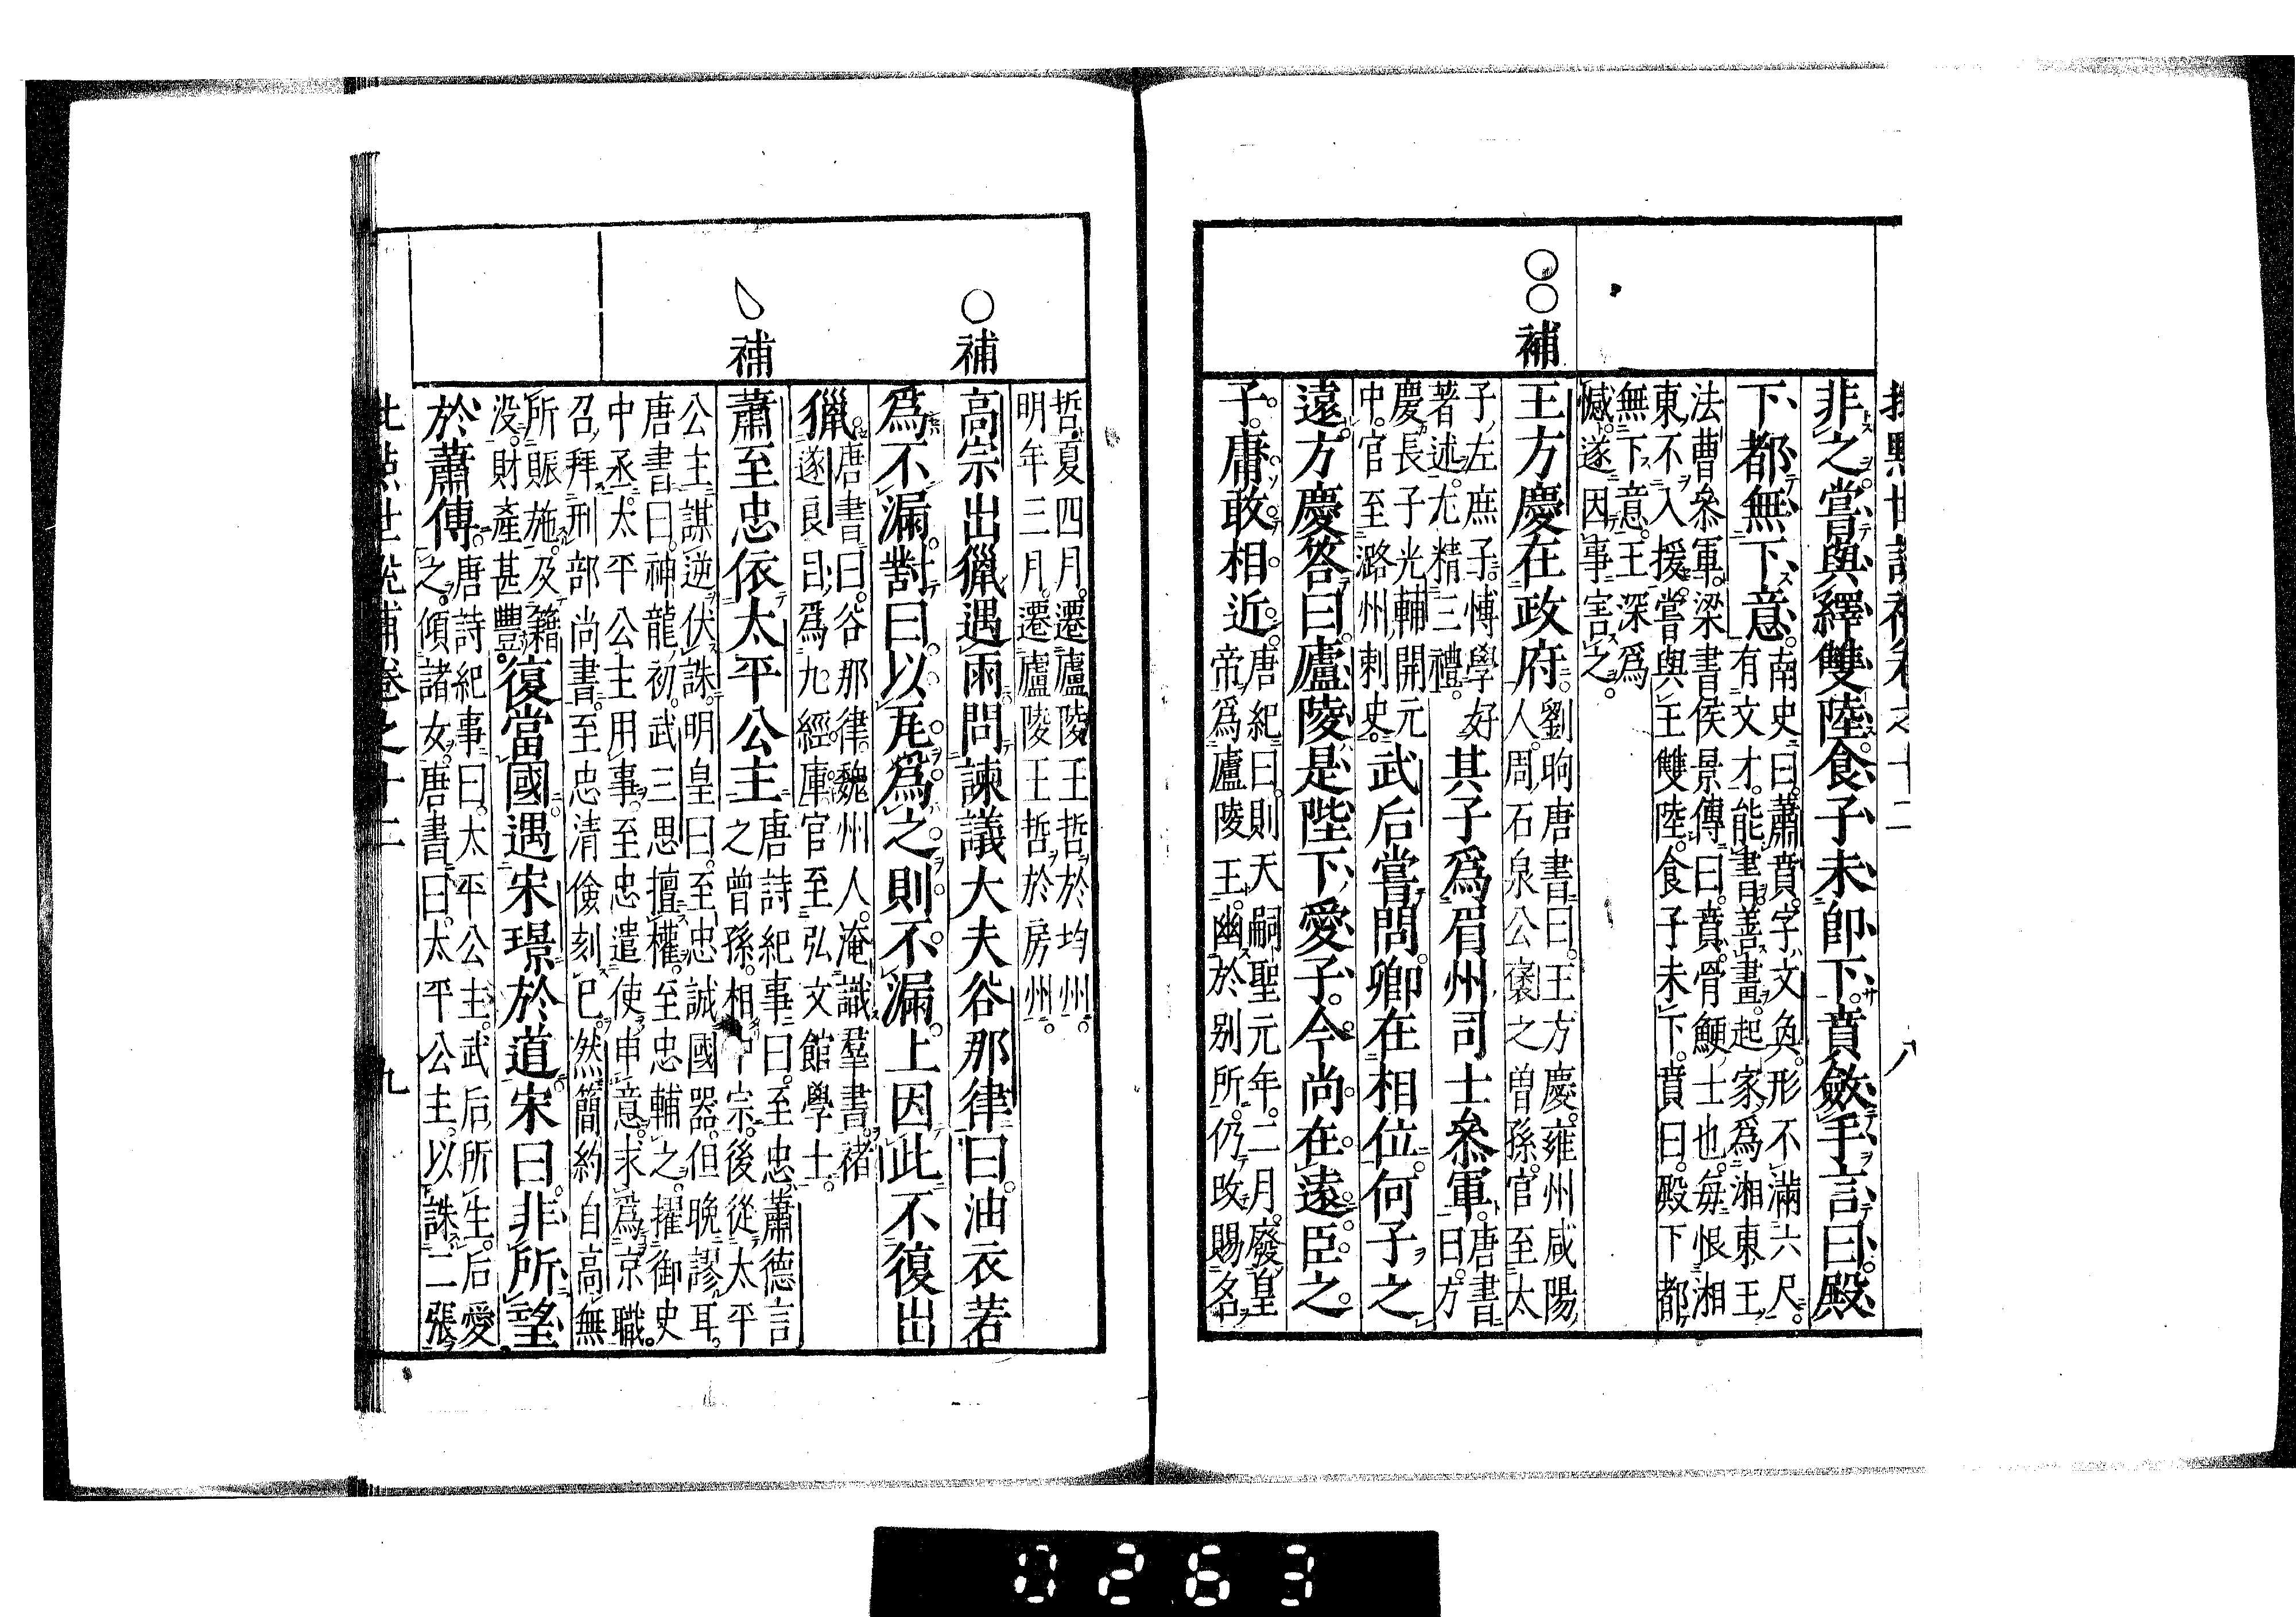 非之嘗與繹雙陸食子未卽下賁斂手言曰殿
下都無下意
南史曰蕭賁字文奐形不滿六尺
有文才能書善畫起家爲湘東王
法曹參軍梁書侯景傳曰賁骨鯁士也每恨湘
東不入援嘗與王雙陸食子未下賁曰殿下都
無下意王深爲
憾遂因事害之
補
王方慶在政府
劉昫唐書曰王方慶雍州咸陽
人周石泉公褒之曾孫官至太
子左庶子博學好
著述尤精三禮
其子爲眉州司士參軍
唐書
曰方
慶長子光輔開元
中官至潞州刺史
武后嘗問卿在相位何子之
遠方慶答曰廬陵是陛下愛子今尚在遠臣之
子庸敢相近
唐紀曰則天嗣聖元年二月廢皇
帝爲廬陵王幽於別所仍改賜名
哲夏四月遷廬陵王哲於均州
明年三月遷廬陵王哲於房州
補
高宗出獵遇雨問諫議大夫谷那律曰油衣若
爲不漏對曰以瓦爲之則不漏上因此不復出
獵
唐書曰谷那律魏州人淹識羣書褚
遂良目爲九經庫官至弘文館學士
補
蕭至忠依太平公主
唐詩紀事曰至忠蕭德言
之曾孫相中宗後從太平
公主謀逆伏誅明皇曰至忠誠國器但晚謬耳
唐書曰神龍初武三思擅權至忠輔之擢御史
中丞太平公主用事至忠遣使申意求爲京職
召拜刑部尚書至忠清儉刻己然簡約自高無
所賑施及籍
沒財產甚豐
復當國遇宋璟於道宋曰非所望
於蕭傅
唐詩紀事曰太平公主武后所生后愛
之傾諸女唐書曰太平公主以誅二張
卷之十二
九
0263